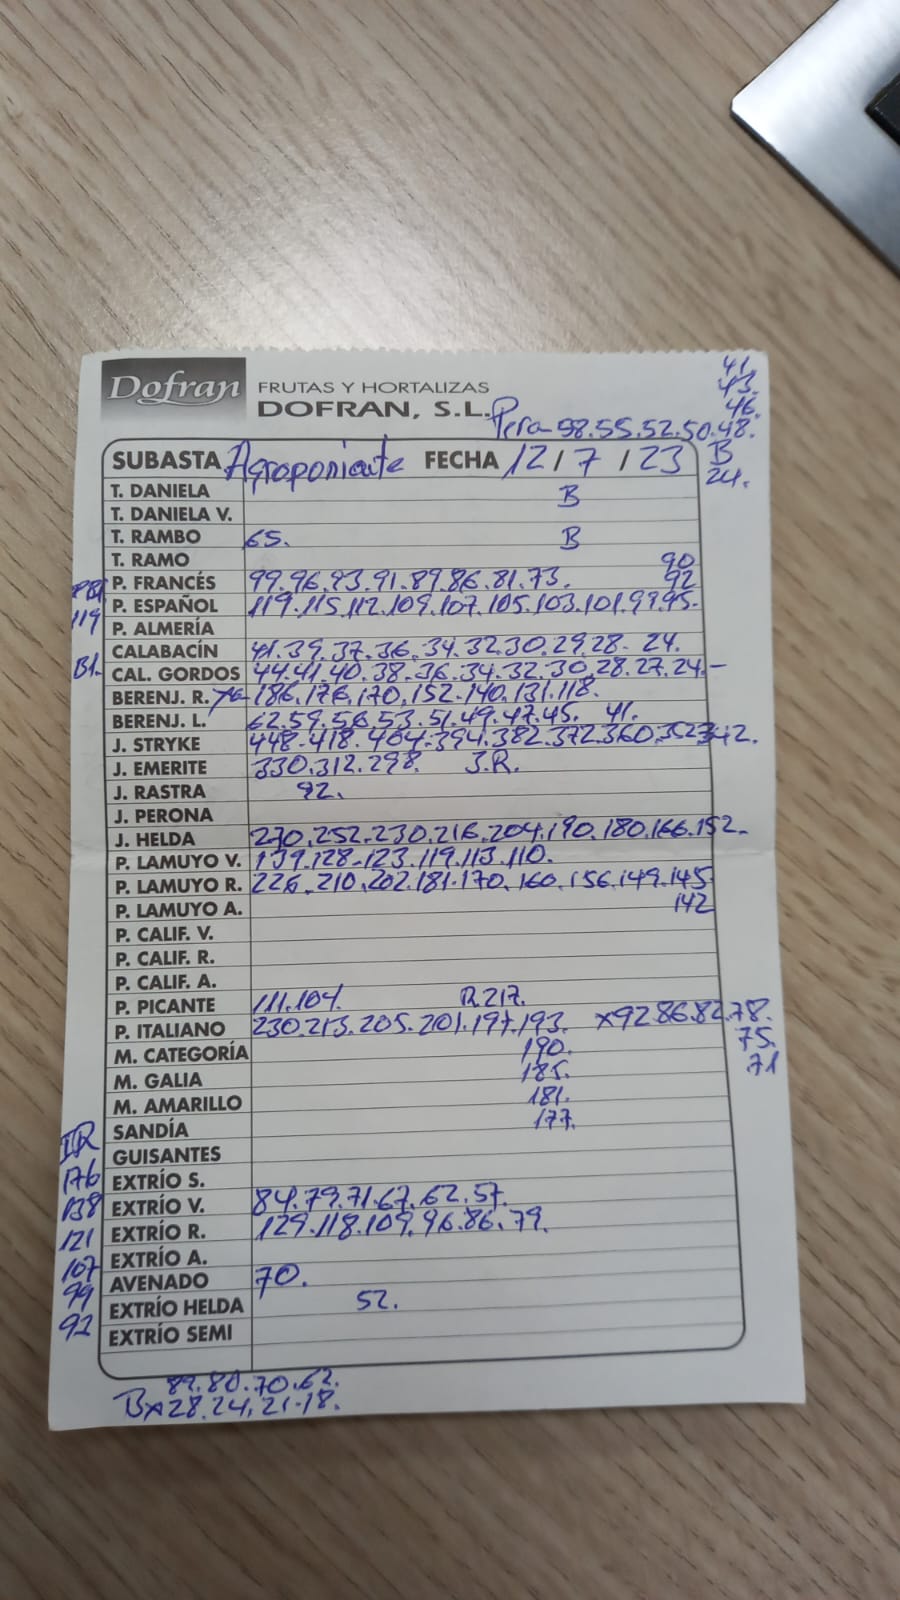 41.
43.
46.
Dofran FRUTAS Y HORTALIZAS
DOFRAN, S.L. Pera 58.55.52.50.48.
SUBASTA Agroponiente FECHA 12/7/23 B
24.
T. DANIELA B
T. DANIELA V.
T. RAMBO 65. B
T. RAMO 90
P. FRANCÉS 99.96.93.91.89.86.81.73. 92
P. ESPAÑOL 119.115.112.109.107.105.103.101.99.95.
119
P. ALMERÍA
CALABACÍN 41.39.37.36.34.32.30.29.28. 24.
B1. CAL. GORDOS 44.41.40.38.36.34.32.30.28.27.24.-
BERENJ. R. 186.176.170.152.140.131.118.
BERENJ. L. 62.59.56.53.51.49.47.45. 41.
J. STRYKE 448.418.404.394.382.372.360.352.342.
J. EMERITE 330.312.298. J.R.
J. RASTRA 92.
J. PERONA
J. HELDA 270.252.230.216.204.190.180.166.152.
P. LAMUYO V. 139.128.123.119.113.110.
P. LAMUYO R. 226.210.202.181.170.160.156.149.145
P. LAMUYO A. 142
P. CALIF. V.
P. CALIF. R.
P. CALIF. A.
P. PICANTE 111.104. R217.
P. ITALIANO 230.213.205.201.197.193. x92.86.82.78.
75.
M. CATEGORÍA 190.
71
M. GALIA 185.
M. AMARILLO 181.
SANDÍA 177.
IR
GUISANTES
176 EXTRÍO S.
138 EXTRÍO V. 84.79.71.67.62.57.
121 EXTRÍO R. 129.118.109.96.86.79.
107 EXTRÍO A.
99 AVENADO 70.
92 EXTRÍO HELDA 52.
EXTRÍO SEMI
89.80.70.62.
Bx28.24.21-18.